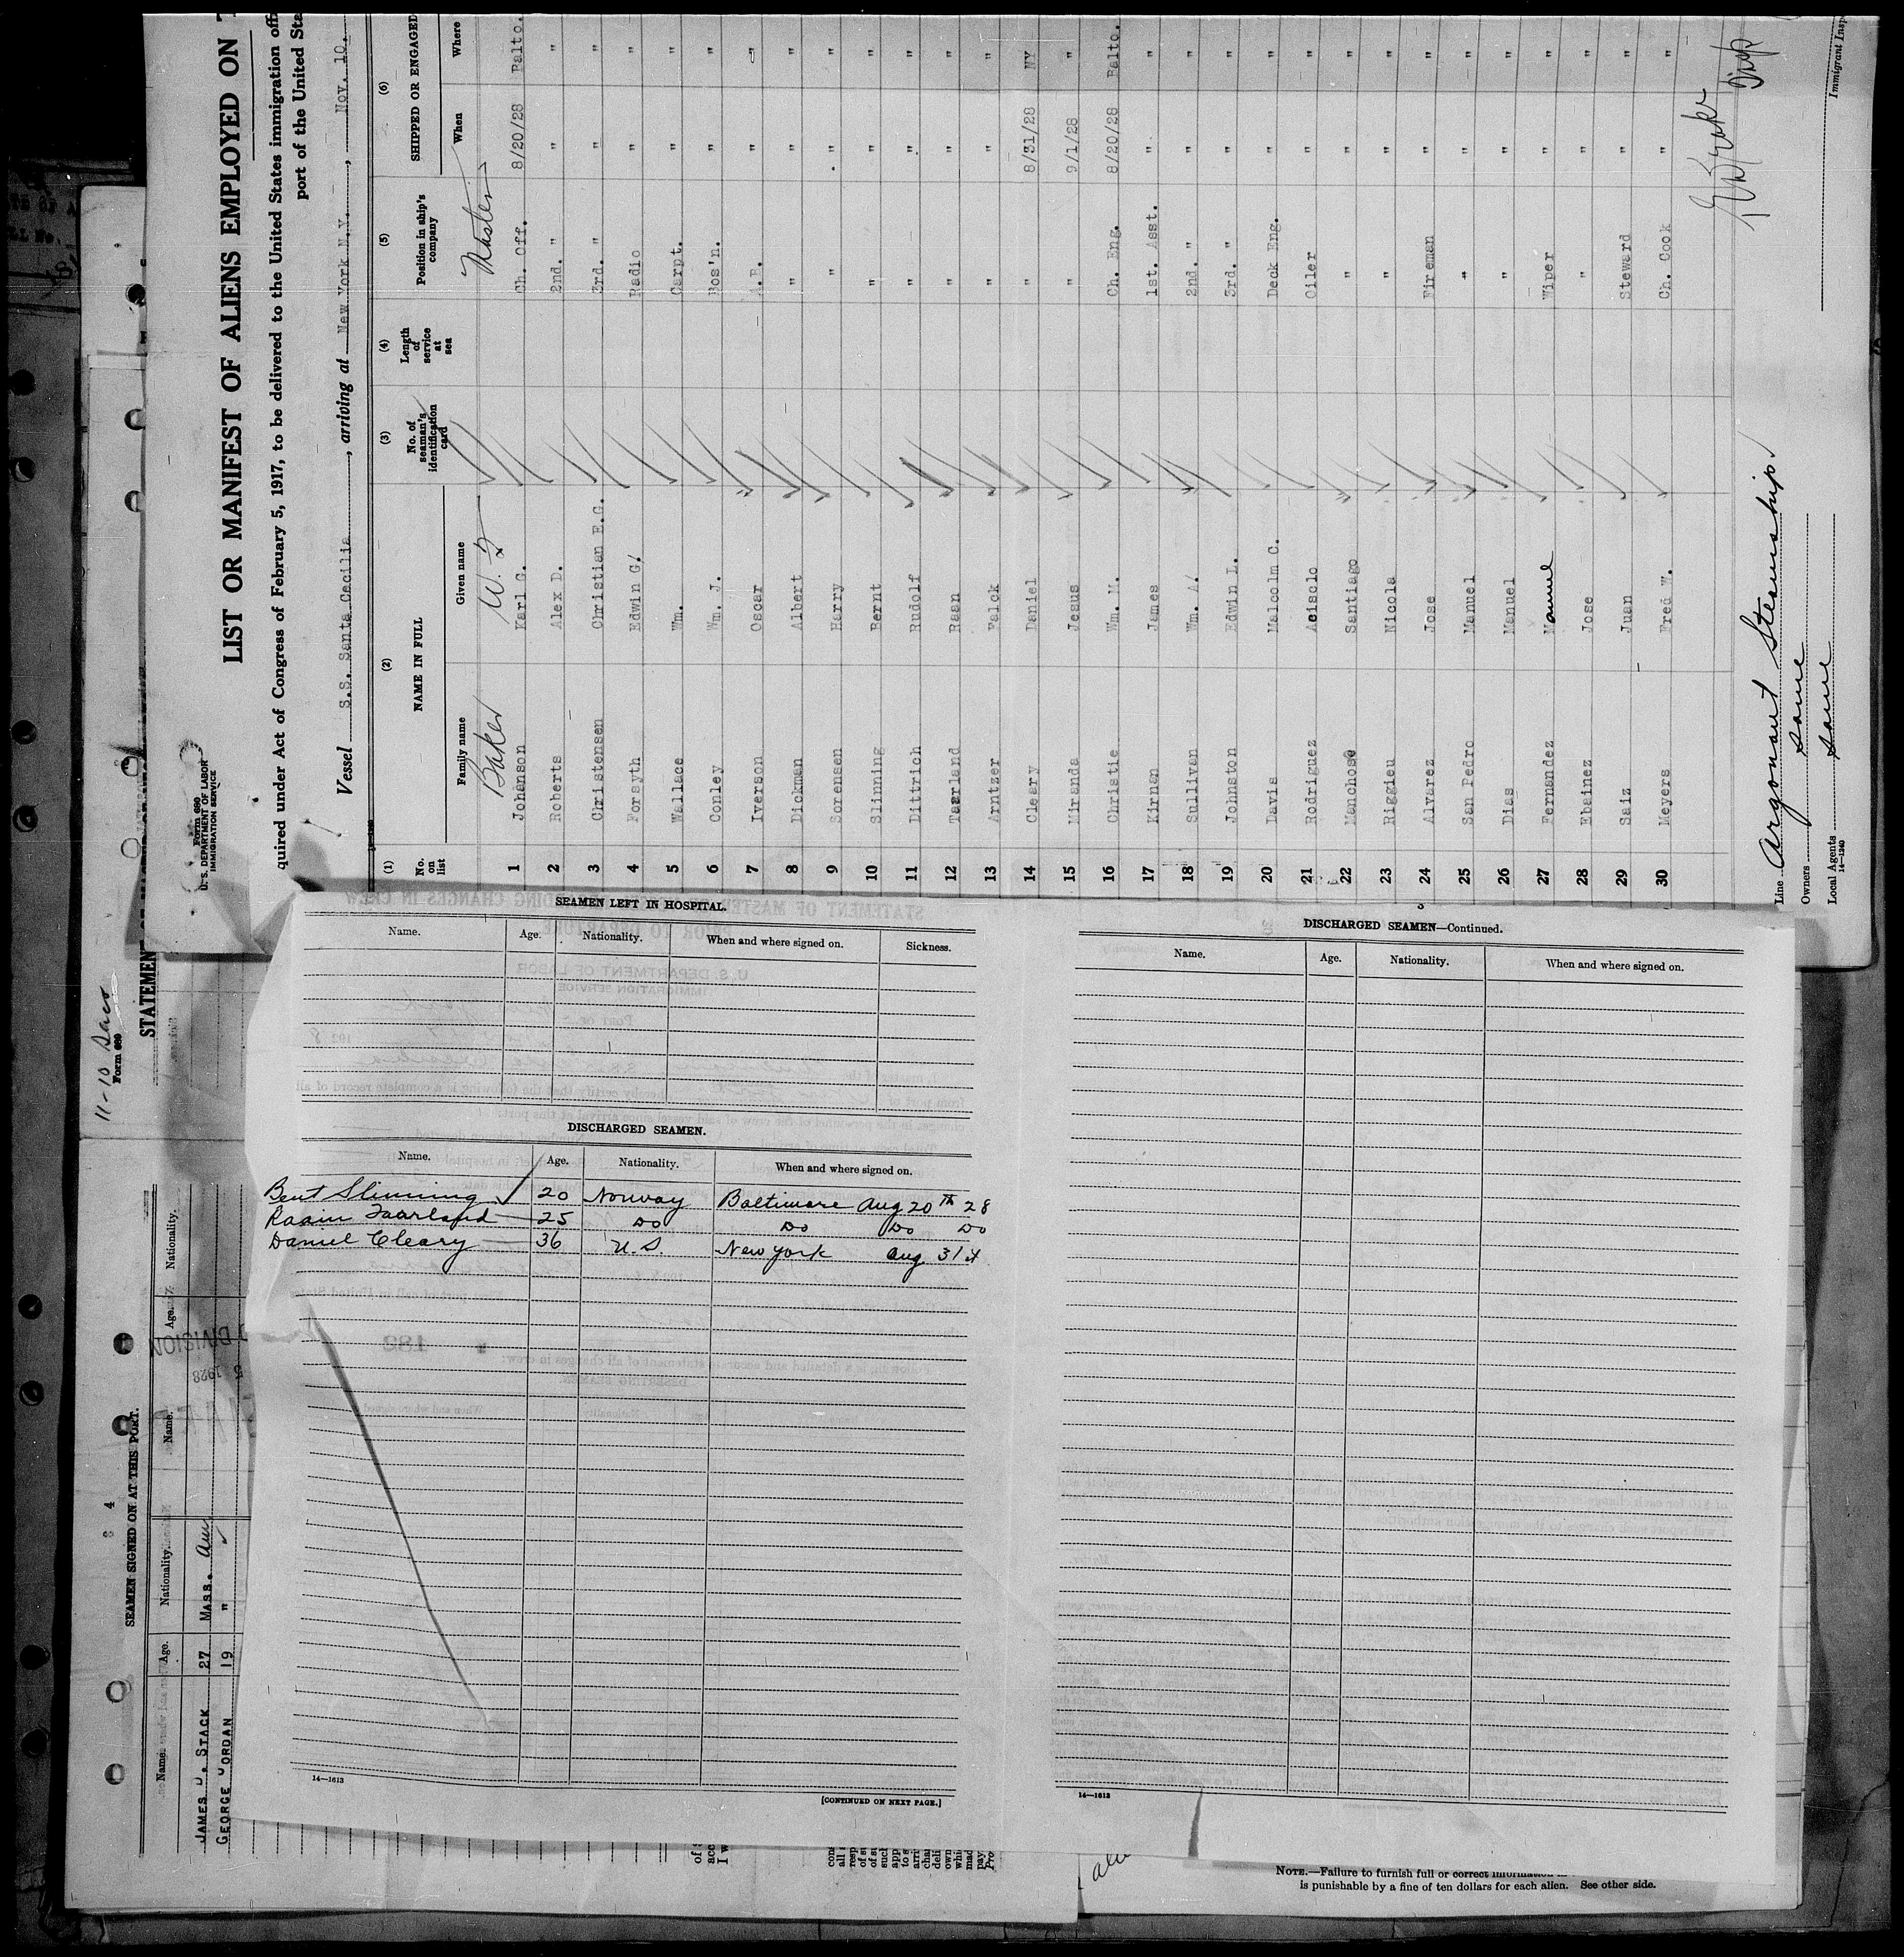 LIST OR MANIFEST OF ALIENS EMPLOYED ON
quired under Act of Congress of February 5, 1917, to be delivered to the United States immigration offi
port of the United Sta
Form 680
U. S. DEPARTMENT OF LABOR
IMMIGRATION SERVICE
Vessel S.S. Santa Cecilia, arriving at New York N.Y., Nov. 10.
(1) (2) (3) (4) (5) (6)
No. on list NAME IN FULL No. of seaman's identification card Length of service at sea Position in ship's company SHIPPED OR ENGAGED
Family name Given name When Where
Baker W. Master
1 Johanson Karl G. Ch. Off. 8/20/28 Balto.
2 Roberts Alex D. 2nd. " " "
3 Christensen Christian E.G. 3rd. " " "
4 Forsyth Edwin G. Radio " "
5 Wallace Wm. Carpt. " "
6 Conley Wm. J. Bos'n. " "
7 Iverson Oscar A.B. " "
8 Dickman Albert " " "
9 Sorensen Harry " " "
10 Slinning Bernt " " "
11 Dittrich Rudolf " " "
12 Taarland Raan " " "
13 Arntzer Falck " " "
14 Cleary Daniel " 8/31/28 NY
15 Miranda Jesus " 9/1/28 "
16 Christie Wm. M. Ch. Eng. 8/20/28 Balto.
17 Kirnan James 1st. Asst. " "
18 Sullivan Wm. A. 2nd. " " "
19 Johnston Edwin L. 3rd. " " "
20 Davis Malcolm C. Deck Eng. " "
21 Rodriguez Acisclo Oiler " "
22 Manchoso Santiago " " "
23 Riggieu Nicola " " "
24 Alvarez Jose Fireman " "
25 San Pedro Manuel " " "
26 Dias Manuel " " "
27 Fernandez Manuel Wiper " "
28 Ebainez Jose " " "
29 Saiz Juan Steward " "
30 Meyers Fred W. Ch. Cook " "
Line Argonaut Steamship
Owners Same
Local Agents Same
14—1240
Immigrant Insp
SEAMEN LEFT IN HOSPITAL.
Name. Age. Nationality. When and where signed on. Sickness.
DISCHARGED SEAMEN.
Name. Age. Nationality. When and where signed on.
Bent Slinning 20 Norway Baltimore Aug 20th 28
Raain Taarland 25 Do Do Do Do
Daniel Cleary 36 U.S. New York Aug 31st
14—1613
[CONTINUED ON NEXT PAGE.]
DISCHARGED SEAMEN—Continued.
Name. Age. Nationality. When and where signed on.
14—1613
11-10 Saco
Form 689
STATEMENT
SEAMEN SIGNED ON AT THIS PORT.
Name. Age. Nationality. Name. Age. Nationality.
JAMES J. STACK 27 MASS. Am
GEORGE JORDAN 19 "
DIVISION
1928
NOTE.—Failure to furnish full or correct information
is punishable by a fine of ten dollars for each alien. See other side.